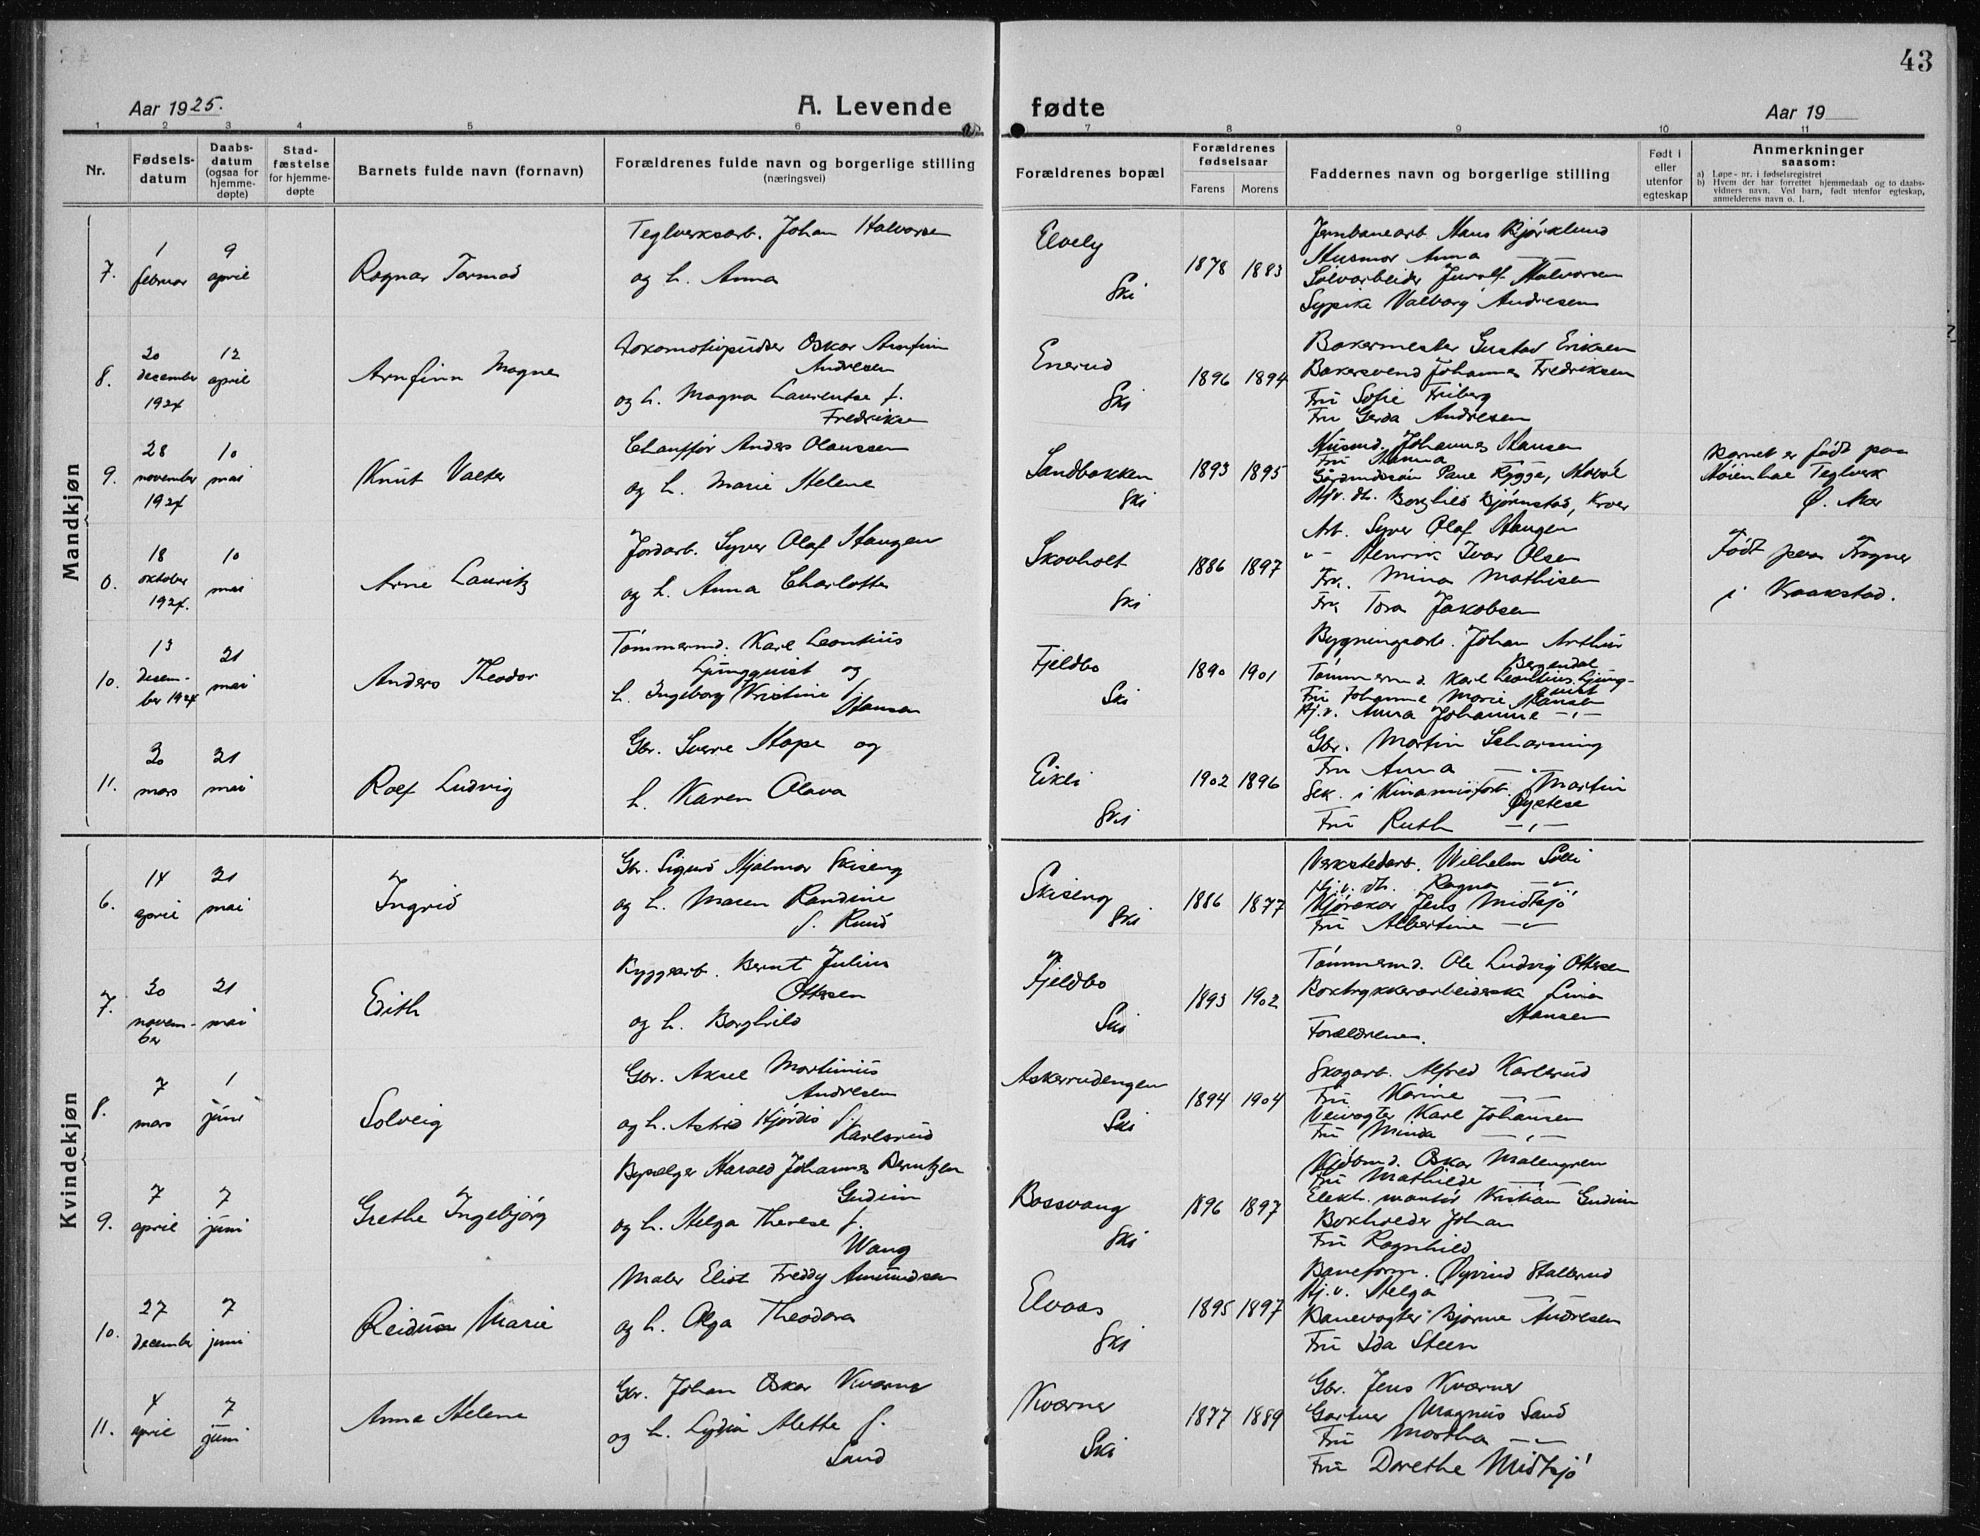 43
Aar 1925.
A. Levende fødte
Aar 19
1 2 3 4 5 6 7 8 9 10 11
Nr.
Fødsels-
datum
Daabs-
datum
(ogsaa for
hjemme-
døpte)
Stad-
fæstelse
for hjemme-
døpte
Barnets fulde navn (fornavn)
Forældrenes fulde navn og borgerlige stilling
(næringsvei)
Forældrenes bopæl
Forældrenes
fødselsaar
Farens Morens
Faddernes navn og borgerlige stilling
Født i
eller
utenfor
egteskap
Anmerkninger
saasom:
a) Løpe-nr. i fødselsregistret
b) Hvem der har forrettet hjemmedaab og to daabs-
vidners navn. Ved barn, født utenfor egteskap,
anmelderens navn o. l.
Mandkjøn
7.
1
februar
9
april
Ragnar Tormod
Teglverksarb. Johan Halvorsen
og h. Anna
Elvely
Ski
1878 1883
Jernbanearb. Hans Bjørklund
Husmor Anna —
Sølvarbeider Halvorsen
Sypike Valborg Andresen
8.
20
december
1924
12
april
Arnfinn Magne
Lokomotivpudser Oskar Arnfinn
Andresen
og h. Magna Laurentse f.
Fredriksen
Enerud
Ski
1896 1894
Bakermester Gustav Eriksen
Bakersvend Johannes Fredriksen
Fru Sofie Friberg
Fru Gerda Andresen
9.
28
november
1924
10
mai
Knut Valter
Chauffør Anders Olaussen
og h. Marie Helene
Sandbakken
Ski
1893 1895
Husmd. Johannes Hansen
Fru Hanna —
Rygge,
Hjv. dt. Borghild Bjørnstad, Kroer
Barnet er født paa
Teglverk
Ø. Aker
0.
18
oktober
1924.
10
mai
Arne Lauritz
Jordarb. Syver Olaf Haugen
og h. Anna Charlotte
Skovholt
Ski
1886 1897
Arb. Syver Olaf Haugen
" - Henrik Ivar Olsen
Frk. Mina Mathisen
Frk. Tora Jakobsen
Født paa Frogner
i Kraakstad.
10.
13
desem-
ber 1924
21
mai
Anders Theodor
Tømmermd. Karl Leontius
Ljungquist og
h. Ingeborg Kristine f.
Hansen
Fjeldbo
Ski
1890 1901
Bygningsarb. Johan Arthur
Bergendal
Tømmermd. Karl Leontius Ljung-
quist
Fru Johanne Marie Hansen
Hj.v. Anna Johanne —"—
11.
20
mars
21
mai
Rolf Ludvig
Gbr. Sverre Hope og
h. Karen Olava
Eikli
Ski
1902 1896
Gbr. Martin Scharning
Fru Anna —
Sek. i Kinamisforb. Martin
Øystese
Fru Ruth —"—
Kvindekjøn
6.
14
april
21
mai
Ingrid
Gbr. Sigurd Hjalmar Skiseng
og h. Maren Randine
f. Ruud
Skiseng
Ski
1886 1877
Verkstedarb. Wilhelm Solli
Hj.v. dt. Ragna —"—
Kjørekar Jens Midtsjø
Fru Albertine —"—
7.
30
novem-
ber
21
mai
Edith
Byggearb. Bernt Julius
Ottesen
og h. Borghild
Fjeldbo
Ski
1893 1902
Tømmermd. Ole Ludvig Ottesen
Boktrykkerarbeiderske Lina
Hansen
Forældrene.
8.
7
mars
1
juni
Solveig
Gbr. Aksel Martinius
Andresen
og h. Astrid Hjørdis f.
Karlsrud
Askerudengen
Ski
1894 1904
Skogarb. Alfred Karlsrud
Fru Karine —
Veivogter Karl Johansen
Fru Minda —"—
9.
7
april
7
juni
Grethe Ingebjørg
Harald Johannes Berntzen
Gudim
og h. Helga Therese f.
Wang
Ski
1896 1897
Oskar Malmgren
Fru Mathilde —"—
Elektr. montør Kristian Gudim
Bokholder Johan —
Fru Ragnhild
10.
27
december
7
juni
Reidun Marie
Maler Eliot Freddy Amundsen
og h. Olga Theodora
Elvaas
Ski
1895 1897
Baneform. Øyvind Hallerud
Hj.v. Helga —
Banevogter Bjarne Andresen
Fru Ida Steen
11.
4
april
7
juni
Anna Helene
Gbr. Johan Oskar Kværner
og h. Lydia Alette f.
Sand
Kværner
Ski
1877 1889
Gbr. Jens Kværner
Gartner Magnus Sand
Fru Martha —"—
Fru Dorethe Midtsjø